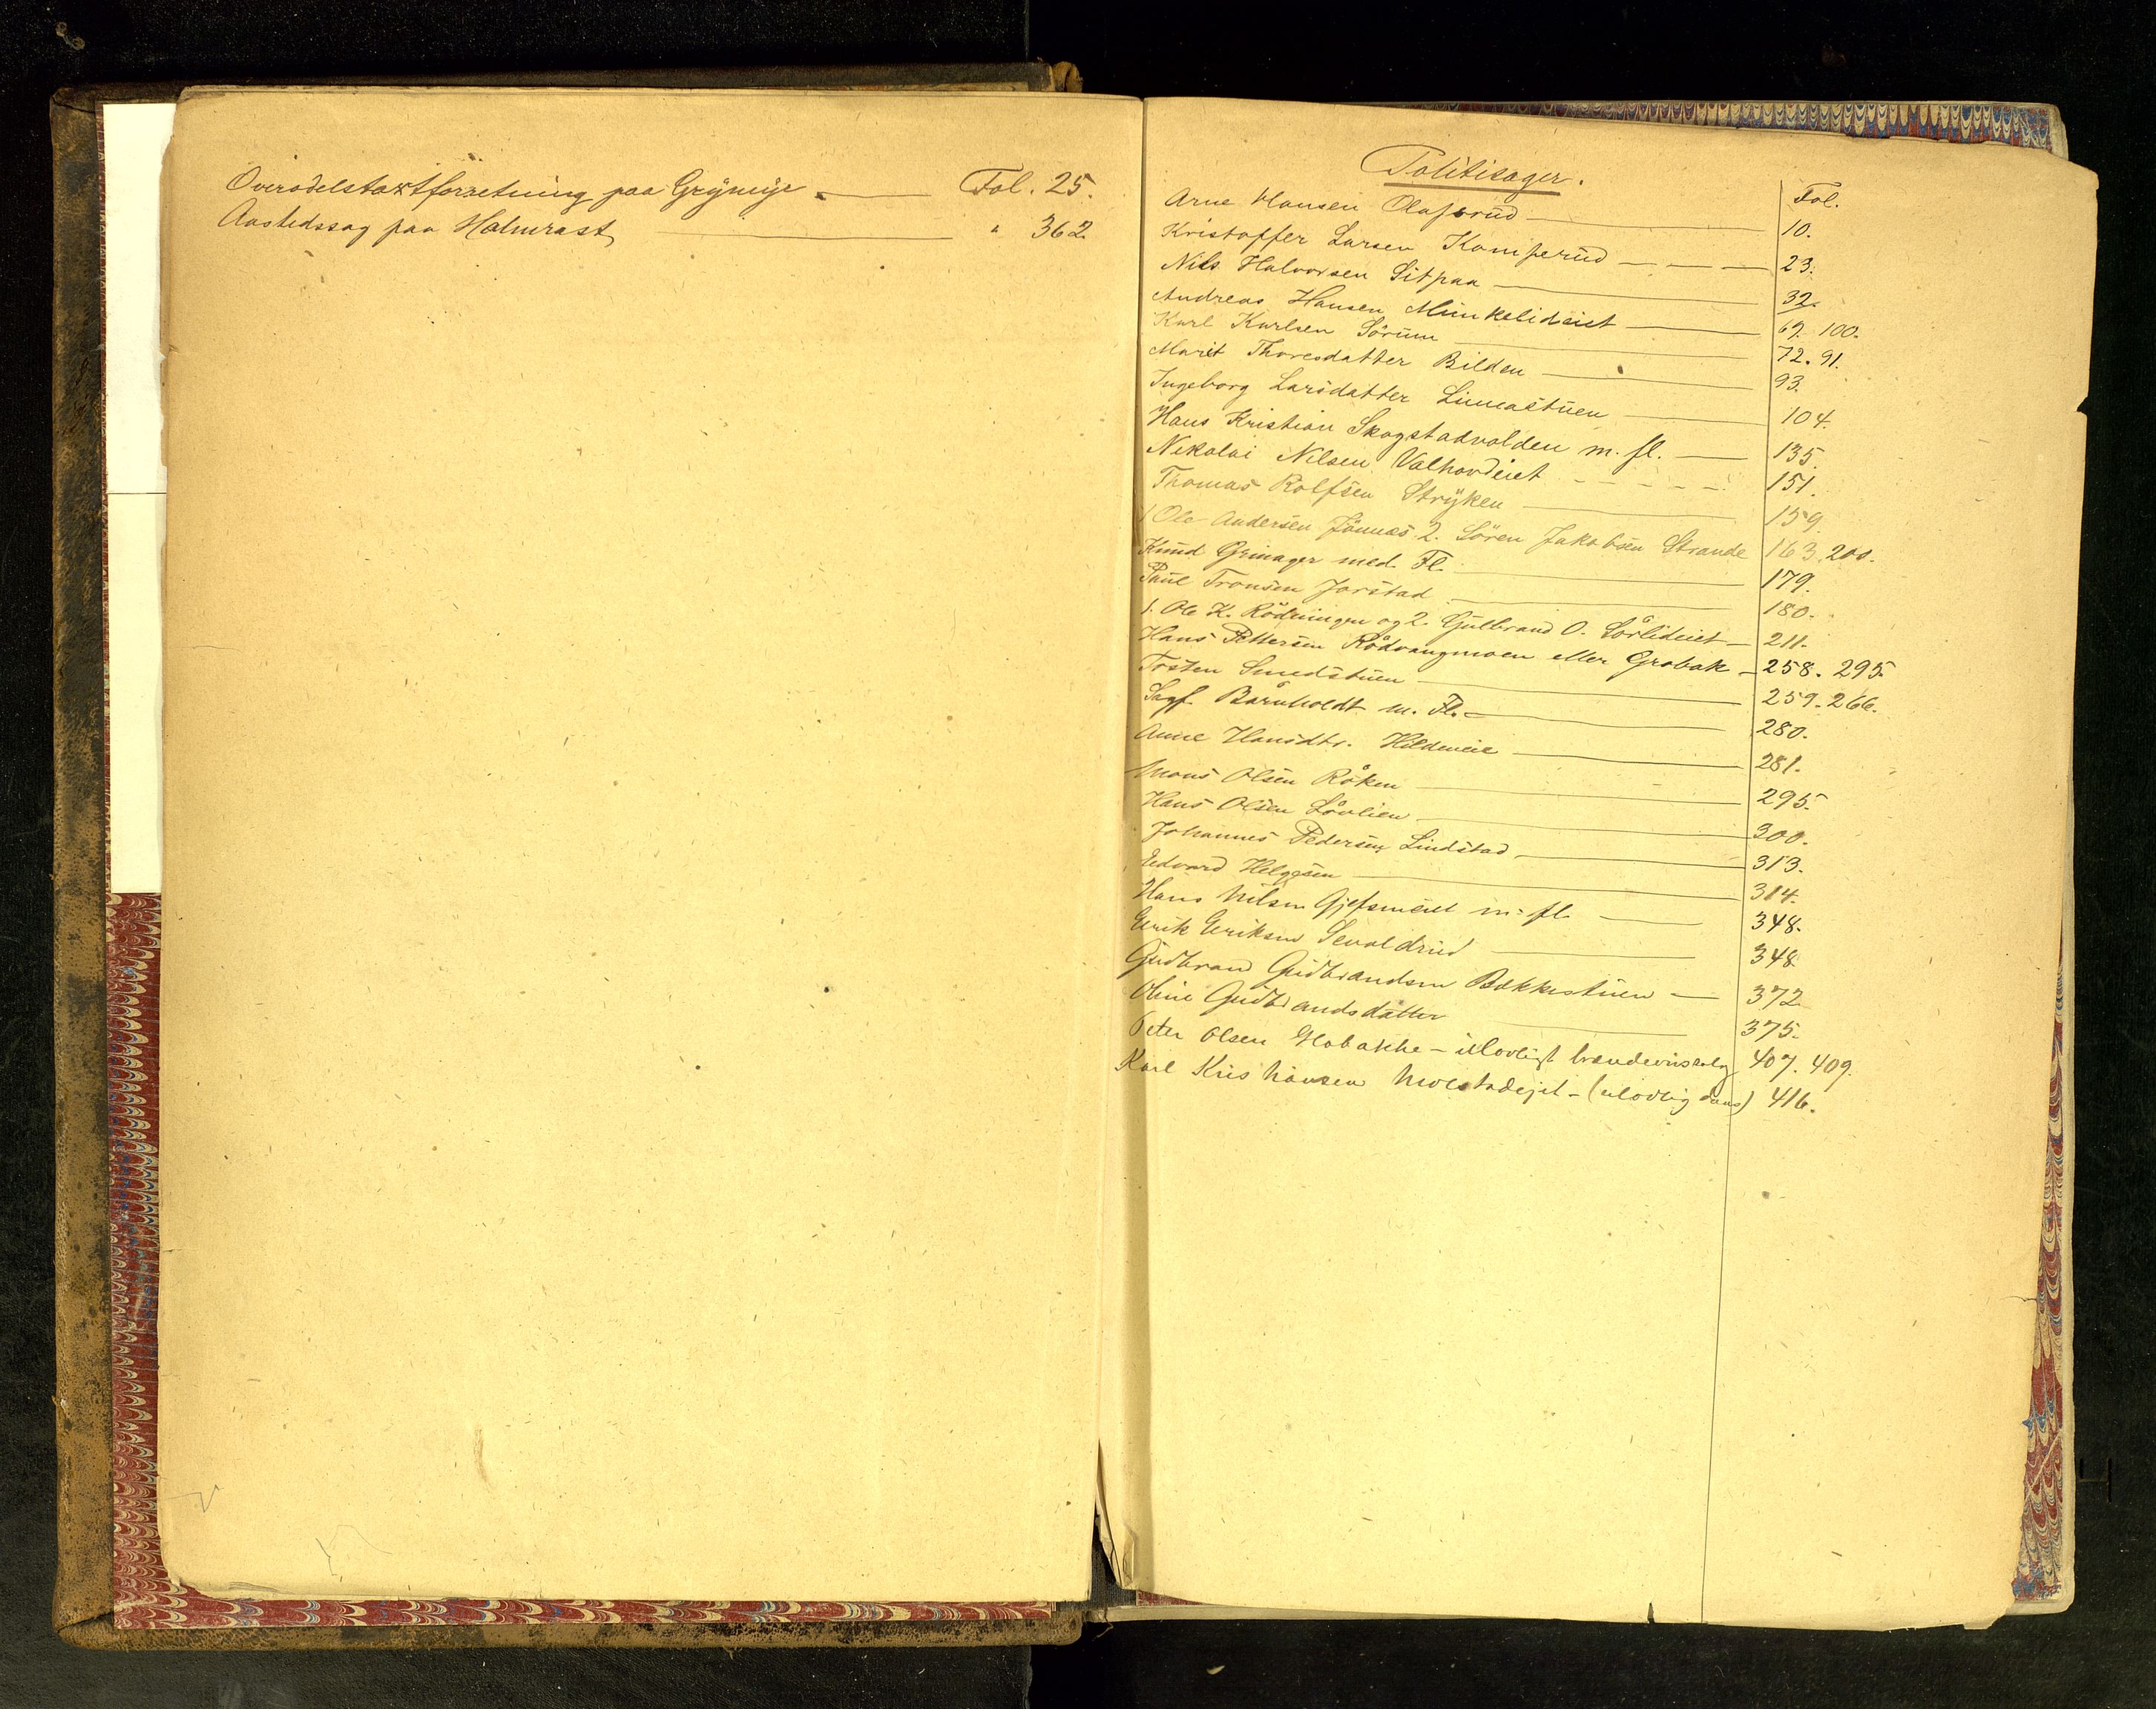 Overodelstaxtforretning paa Gryneye. Fol. 25.
Aastedssag paa Halmrast " 362.
Politisager.
Fol.
Arne Hansen Olafsrud 10.
Kristoffer Larsen Kamperud 23.
Nils Halvorsen Sitpaa 32.
Andreas Hansen Munkelideiet 69. 100.
Karl Karlsen Sörum 72. 91.
Marit Thoresdatter Bilden 93.
Ingeborg Larsdatter Linnestuen 104.
Hans Kristian Skogstadvolden m. fl. 135.
Nekolai Nilsen Valhovdeiet 151.
Thomas Rolfsen Stryken 159.
1 Ole Andersen Jönnes 2. Sören Jakobsen Strande 163. 200.
Knud Grinager med Fl. 179.
Paul Tronsen Jorstad 180.
1. Ole K. Rödningen og 2. Gulbrand O. Sørlideiet 211.
Hans Pettersen Rødvangmoen eller Grobak 258. 295.
Torsten Smedstuen 259. 266.
Sagf. Barnholdt m. Fl. 280.
Anne Hansdtr. Hildeneie 281.
Mons Olsen Røken 295.
Hans Olsen Løvlien 300.
Johannes Pedersen Lindstad 313.
Edvard Helgesen 314.
Hans Nilsen Gjefsmeiet m. fl. 348.
Erik Eriksen Sevaldrud 348.
Gudbrand Gudbrandsen Bakkestuen 372
Oline Gudbrandsdatter 375.
Peter Olsen Hobakke - ulovligt brændeviinssalg 407. 409.
Karl Kristiansen Molstadejet - (ulovlig dans) 416.